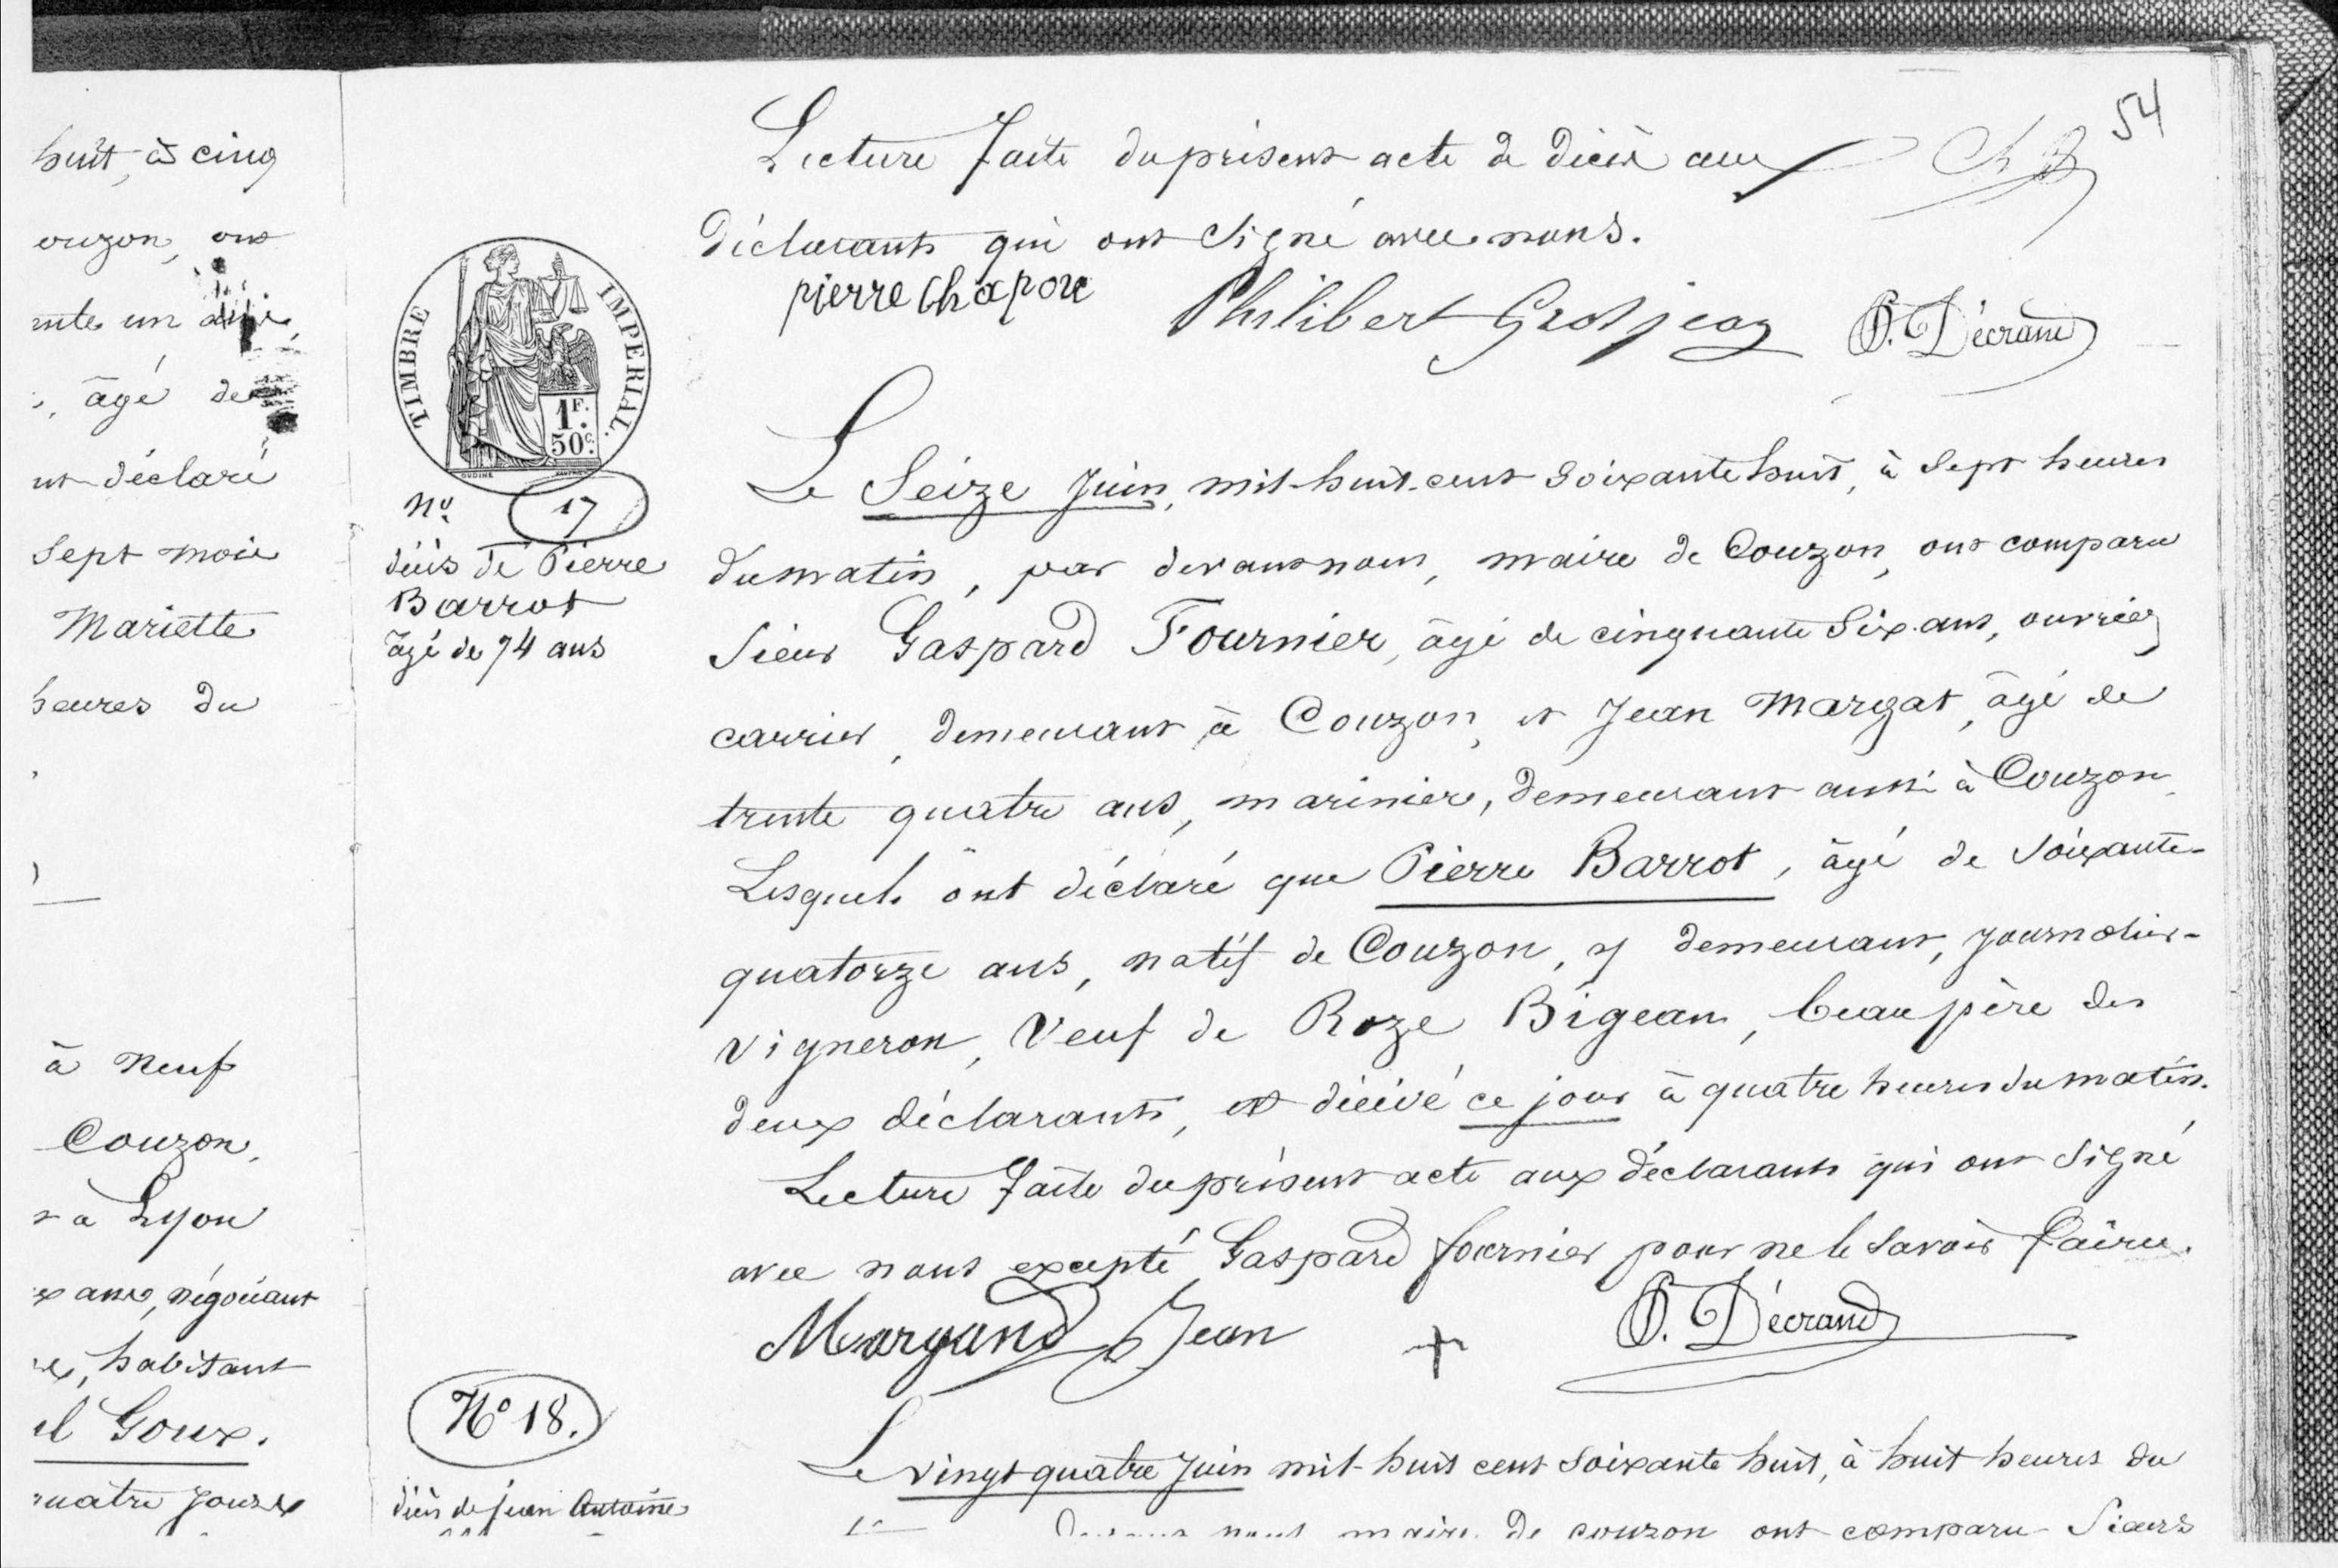 huit, à cinq
ouzon, ont
ente un ans
, âgé de
nt déclaré
Sept mois
Mariette
heures du
à neuf
Couzon,
à Lyon
ans, négociant
habitant
Goux.
quatre jours
54
Lecture faite du présent acte de décès aux
déclarants qui ont Signé avec nous.
pierre Chapon
Philibert Grosjean
P. Décrand
TIMBRE IMPERIAL.
1F.
50c.
OUDINÉ
No 17
décès de Pierre
Barrot
âgé de 74 ans
Le Seize Juin, mil-huit-cent Soixante huit, à Sept heures
du matin, par devant nous, maire de Couzon, ont comparu
Sieur Gaspard Fournier, âgé de cinquante Six ans, ouvrier
carrier, demeurant à Couzon, et Jean Margat, âgé de
trente quatre ans, marinier, demeurant aussi à Couzon,
Lesquels ont déclaré que Pierre Barrot, âgé de Soixante-
quatorze ans, natif de Couzon, y demeurant, journalier-
vigneron, Veuf de Roze Bigean, beau père des
deux déclarants, est décédé ce jour à quatre heures du matin.
Lecture faite du présent acte aux déclarants qui ont Signé
avec nous excepté Gaspard fournier pour ne le Savoir faire.
Margand Jean
+
P. Décrand
No 18.
décès de jean Antoine
Le vingt quatre Juin mil-huit cent Soixante huit, à huit heures du
nous maire de couzon ont comparu Sieurs